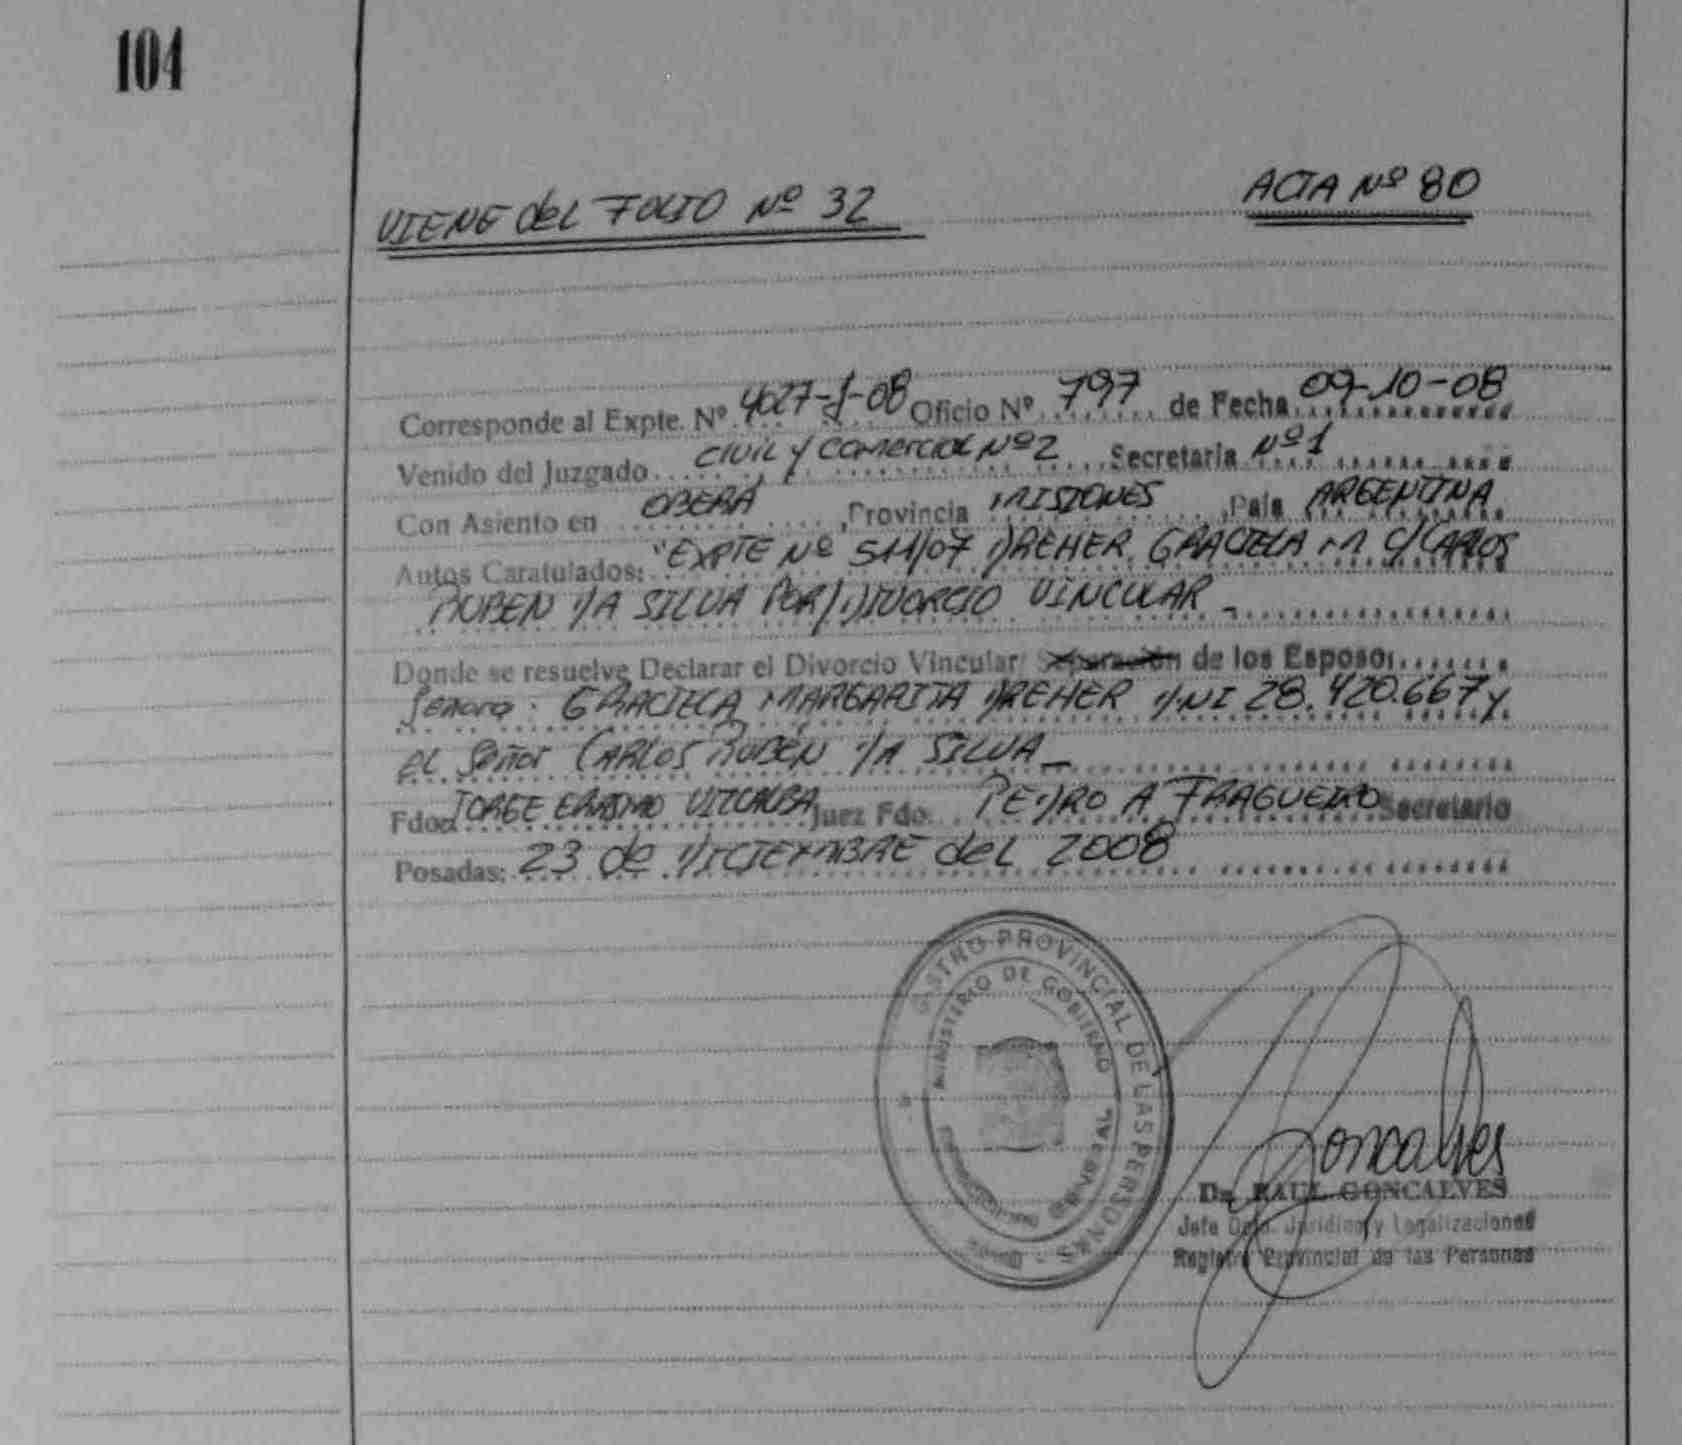 104
VIENE del FOLIO Nº 32
ACTA Nº 80
Corresponde al Expte. Nº 4027-J-08 Oficio Nº 797 de Fecha 09-10-08
Venido del Juzgado civil y comercial Nº 2 Secretaria Nº 1
Con Asiento en OBERÁ, Provincia MISIONES, País ARGENTINA
Autos Caratulados: "EXPTE Nº 511/07 DREHER, GRACIELA M C/ CARLOS
RUBEN DA SILVA POR/ DIVORCIO VINCULAR -
Donde se resuelve Declarar el Divorcio Vincular Separación de los Esposos
Señora: GRACIELA MARGARITA DREHER DNI 28.420.667 y
el Señor CARLOS RUBÉN DA SILVA -
Fdo: JORGE ERASMO VILLALBA Juez Fdo. PEDRO A FRAGUEIRO Secretario
Posadas: 23 de DICIEMBRE del 2008
REGISTRO PROVINCIAL DE LAS PERSONAS
MINISTERIO DE GOBIERNO
Goncalves
Dr. RAUL GONCALVES
Jefe Dpto. Jurídico y Legalizaciones
Registro Provincial de las Personas